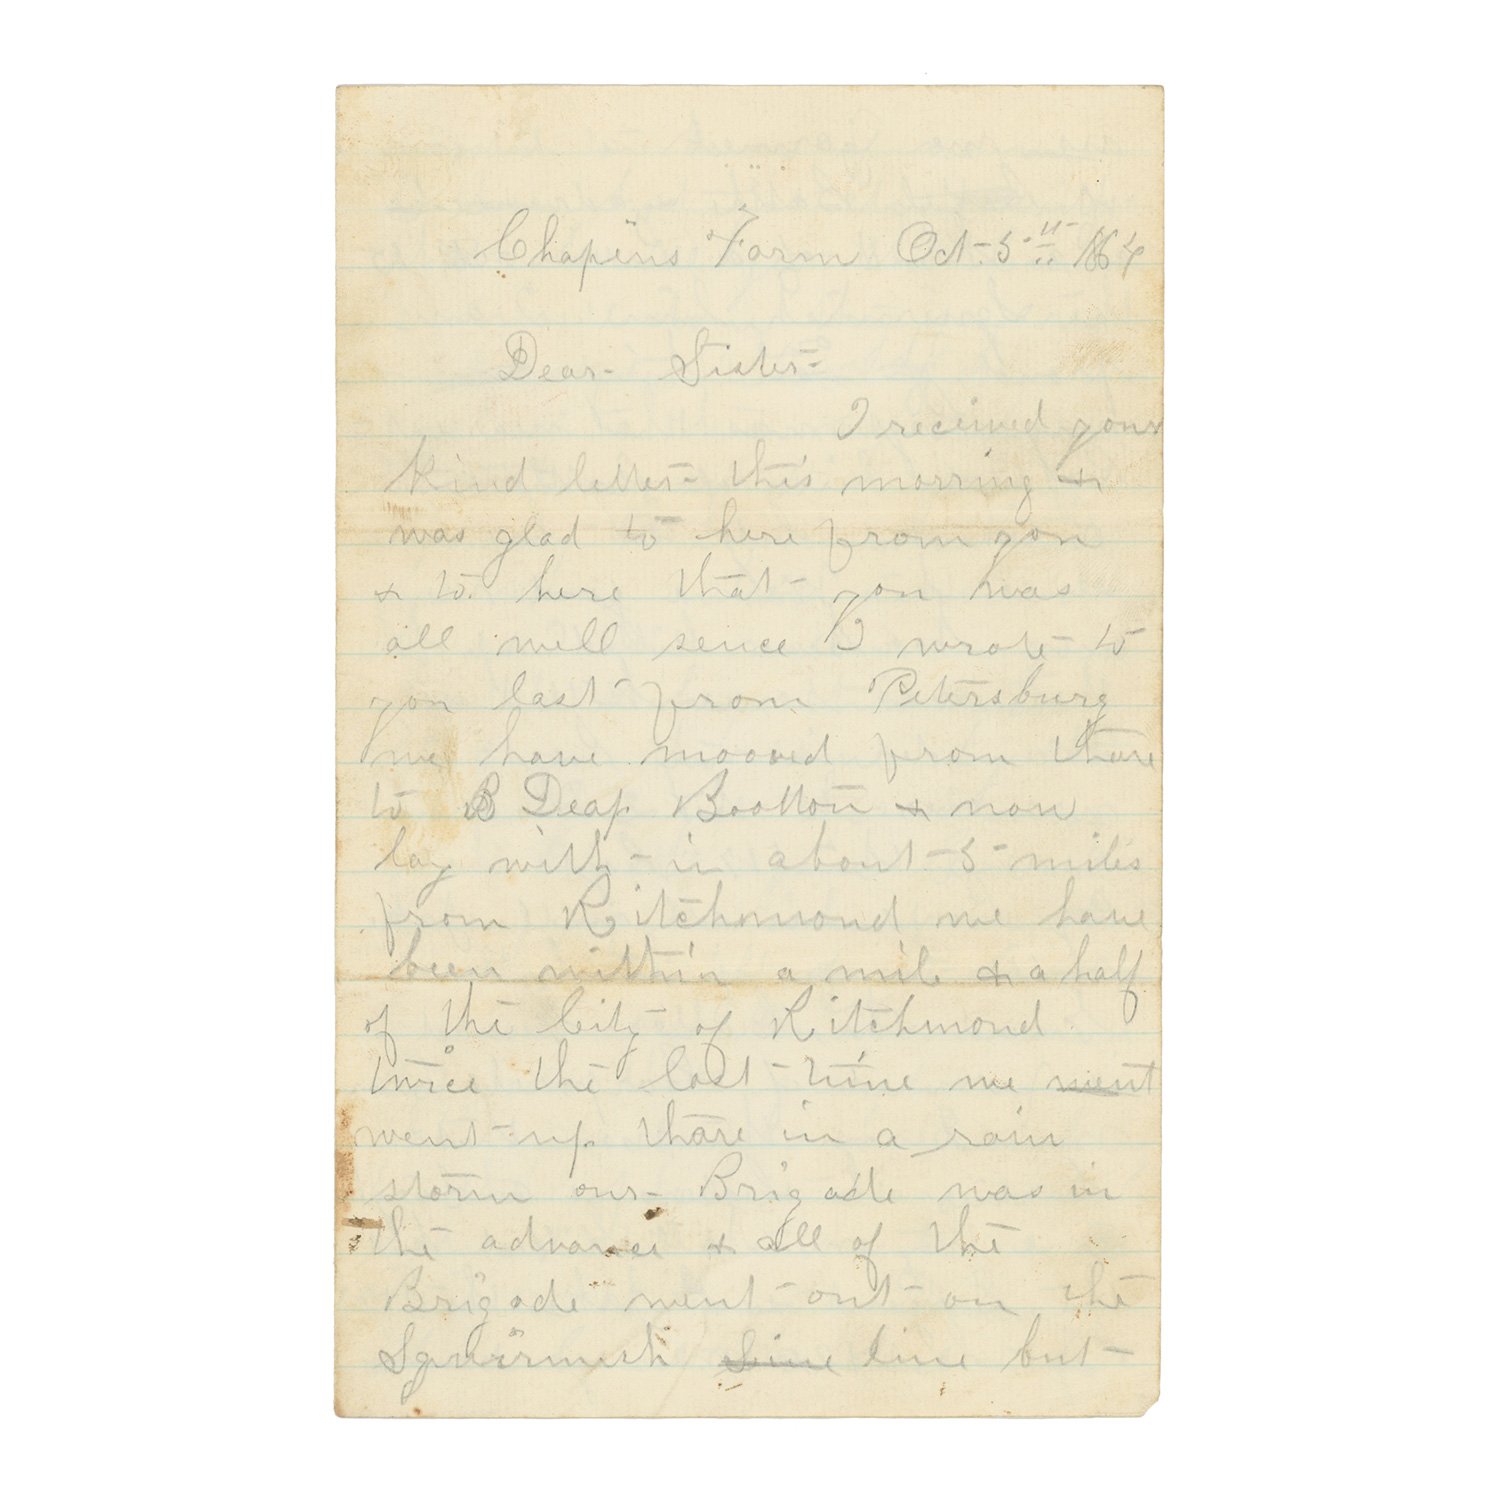 Chapins Farm Oct. 5th 1864
Dear Sister
I received your
kind letter this morring &
was glad to here from you
& to here that you was
all well sence I wrote to
you last from Petersburg
we have mooved from thare
to B Deap Bootton & now
lay with in about 5 miles
from Ritchmond we have
been within a mile & a half
of the City of Ritchmond
twice the last time we went
went up thare in a rain
storm our Brigade was in
the advance & all of the
Brigade went out on the
Squirmish line but